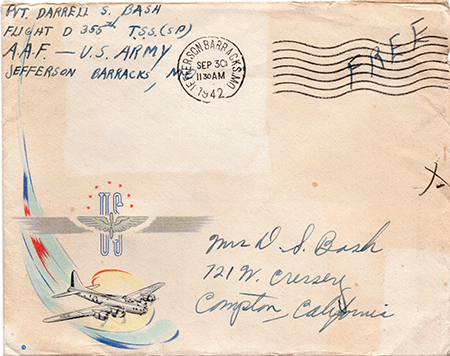 PVT. DARRELL S. BASH
FLIGHT D 355th T.S.S. (SP)
A.A.F. — U.S. ARMY
JEFFERSON BARRACKS, M
JEFFERSON BARRACKS, MO.
SEP 30
11 30 AM
1942
FREE
US
Mrs D. S. Bash
721 W. Cressey
Compton, California